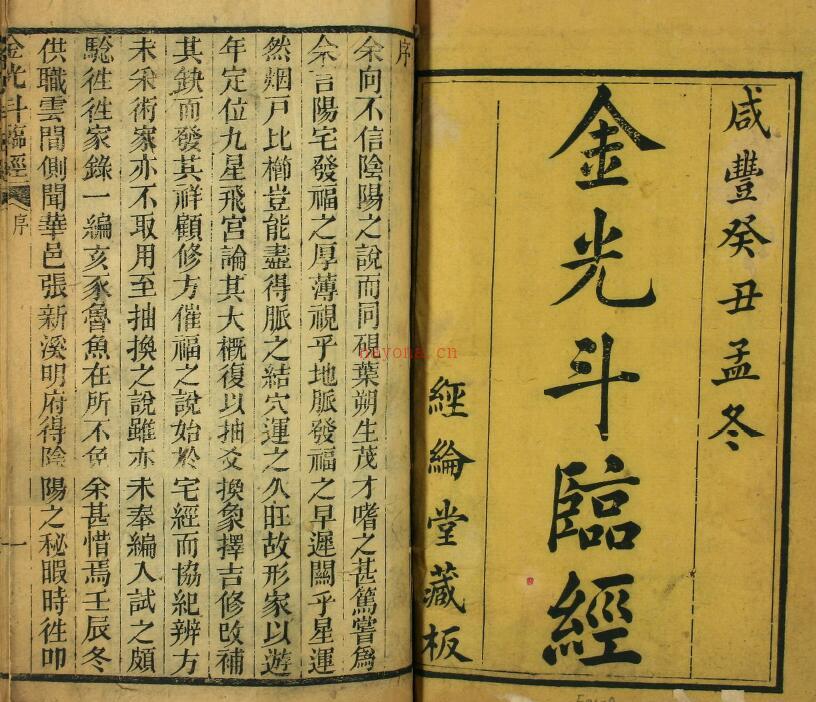 咸豐癸丑孟冬
金光斗臨經
經綸堂藏板
序
余向不信陰陽之說而同硯葉朔生茂才嗜之甚篤嘗爲
余言陽宅發福之厚薄視乎地脈發福之早遲關乎星運
然烟戸比櫛豈能盡得脈之結穴運之久旺故形家以遊
年定位九星飛宮論其大概復以抽爻換象擇吉修改補
其缺而發其祥顧修方催福之說始於宅經而協紀辨方
未采術家亦不取用至抽換之說雖亦未奉編入試之頗
驗徃徃家錄一編亥豕魯魚在所不免余甚惜焉壬辰冬
供職雲間側聞華邑張新溪明府得陰陽之秘暇時徃叩
金光斗臨經
序
一
nayona.cn